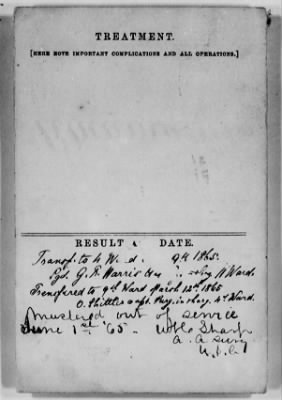 TREATMENT.
[HERE NOTE IMPORTANT COMPLICATIONS AND ALL OPERATIONS.]
RESULT & DATE.
Transf. to 4 W d. 1865.
Sgd. G. R. Harris in chg Ward.
Transfered to 9th Ward March 12th 1865
O. Shittler asst. Surg. in charg. 4th Ward.
Mustered out of service
June 1st '65. Sharp
A. A. Surg
U.S.A.